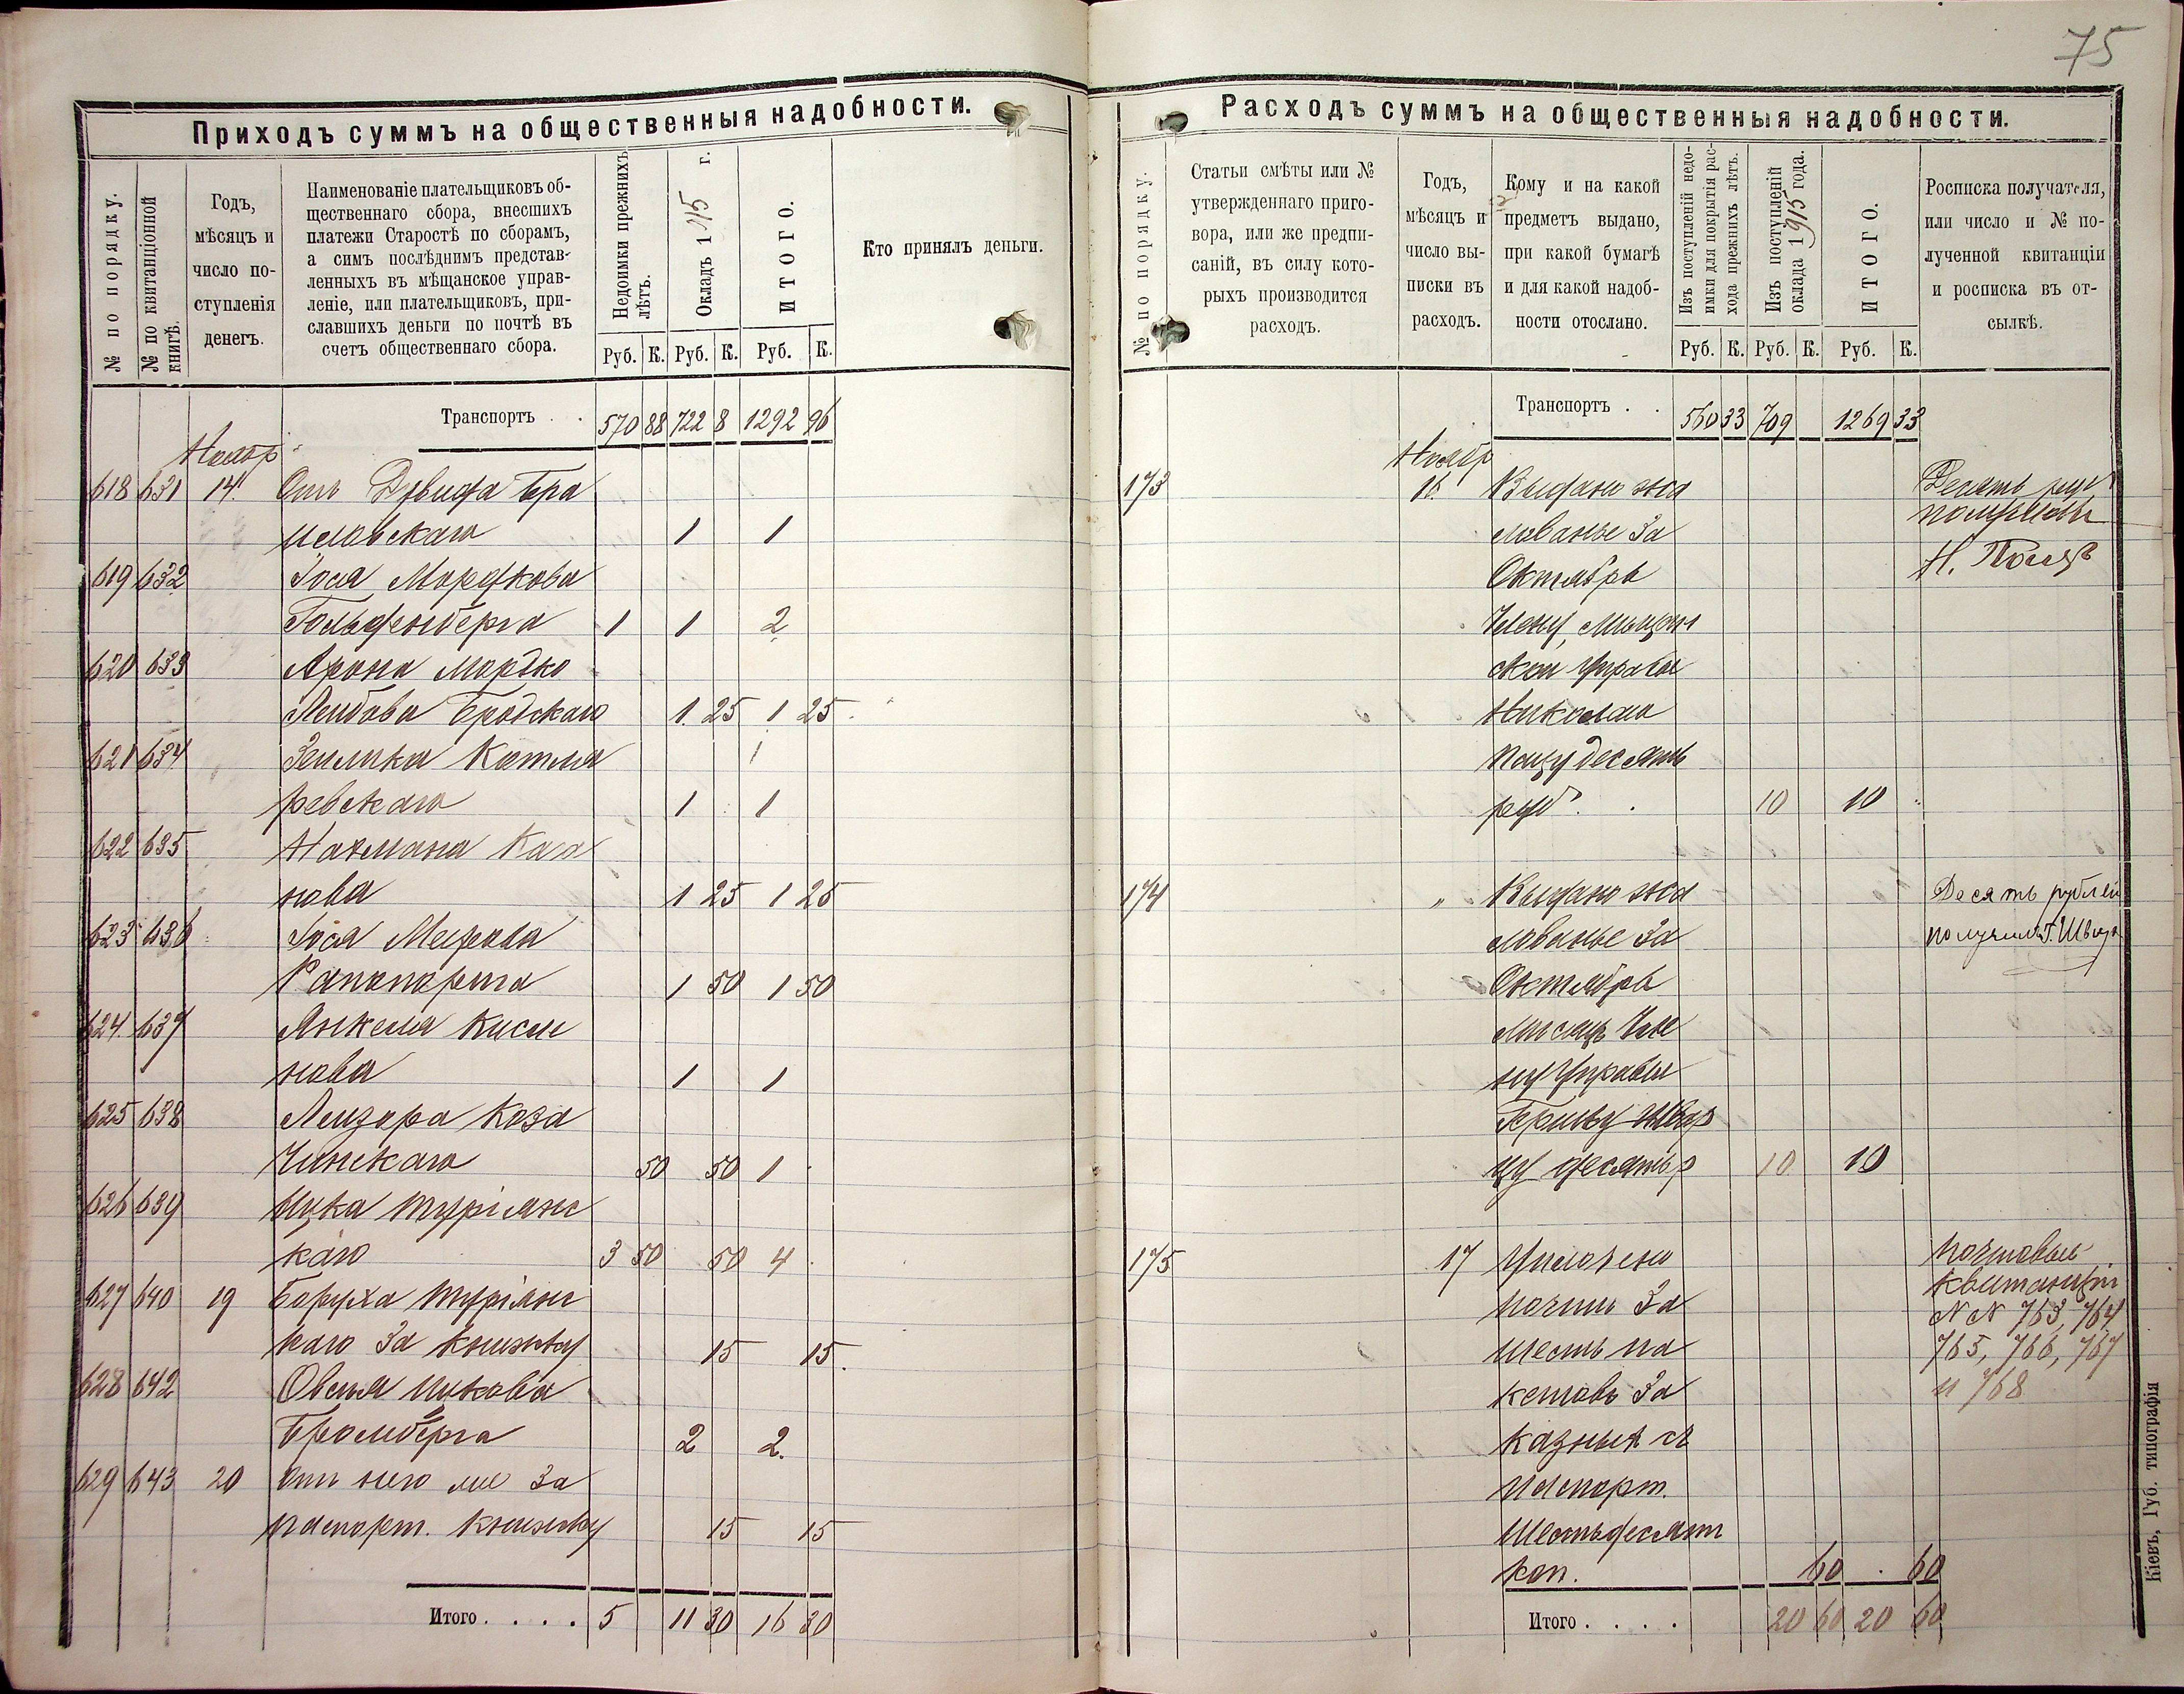 75
Приходъ суммъ на общественныя надобности.
№ по порядку.
№ по квитанціонной книгѣ.
Годъ,
мѣсяцъ и
число по-
ступленія
денегъ.
Наименованіе плательщиковъ об-
щественнаго сбора, внесшихъ
платежи Старостѣ по сборамъ,
а симъ послѣднимъ представ-
ленныхъ въ мѣщанское управ-
леніе, или плательщиковъ, при-
славшихъ деньги по почтѣ въ
счетъ общественнаго сбора.
Недоимки прежнихъ
лѣтъ.
Окладъ 1915 г.
ИТОГО.
Кто принялъ деньги.
Руб. К. Руб. К. Руб. К.
Транспортъ . . 570 88 722 8 1292 96
Ноябр
618 631 14 Отъ Дувида Бра
иловскаго 1 1
619 632 Іося Мордкова
Гольденберга 1 1 2
620 633 Арона Мордко
Лейбова Бродскаго 1 25 1 25
621 634 Зейлика Котля
ревскаго 1 1
622 635 Нахмана Кага
нова 1 25 1 25
623 636 Іося Меерова
Рапопорта 1 50 1 50
624 637 Янкеля
нова 1 1
625 638 Лейзора Коза
чинскаго 50 50 1
626 639 Ицка Турiянс
каго 3 50 50 4
627 640 19 Боруха Турiянс
каго за книжку 15 15
628 642 Овсѣя Ицкова
Бромберга 2 2
629 643 20 Отъ него же за
паспорт. книжку 15 15
Итого . . . . 5 11 30 16 30
Расходъ суммъ на общественныя надобности.
№ по порядку.
Статьи смѣты или №
утвержденнаго приго-
вора, или же предпи-
саній, въ силу кото-
рыхъ производится
расходъ.
Годъ,
мѣсяцъ и
число вы-
писки въ
расходъ.
Кому и на какой
предметъ выдано,
при какой бумагѣ
и для какой надоб-
ности отослано.
Изъ поступленій недо-
имки для покрытія рас-
хода прежнихъ лѣтъ.
Изъ поступленій
оклада 1915 года.
ИТОГО.
Росписка получателя,
или число и № по-
лученной квитанціи
и росписка въ от-
сылкѣ.
Руб. К. Руб. К. Руб. К.
Транспортъ . . 560 33 709 1269 33
Ноябр
173 16 Выдано жа
лованье за
Октябрь
Члену Мѣщан
ской Управы
Николаю
десять
руб. 10 10
Десять руб
получилъ
Н.
174 " Выдано жа
лованье за
Октябрь
мѣсяцъ Чле
ну Управы
Гершку Швар
цу десять р 10 10
Десять рублей
получилъ Г. Шварц
175 17 Уплочено
почти за
шесть па
кетовъ за
казныхъ съ
паспорт.
шестьдесятъ
коп. 60 60
почтовыя
квитанціи
N N 763, 764
765, 766, 767
и 768
Итого . . . . 20 60 20 60
Кіевъ, Губ. типографія